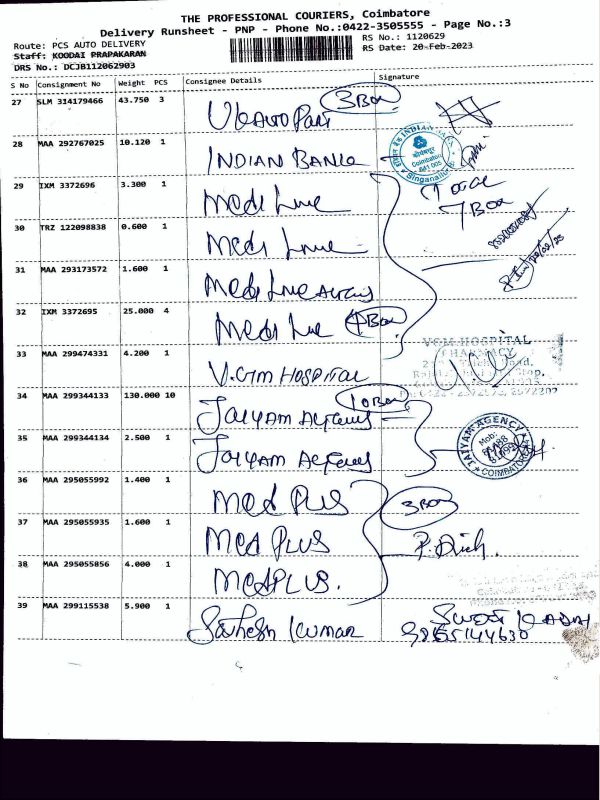 THE PROFESSIONAL COURIERS, Coimbatore
Delivery Runsheet - PNP - Phone No.:0422-3505555 - Page No.:3
Route: PCS AUTO DELIVERY
RS No.: 1120629
Staff: KOODAI PRAPAKARAN
RS Date: 20-Feb-2023
DRS No.: DCJB112062903
S No Consignment No Weight PCS Consignee Details Signature
27 SLM 314179466 43.750 3 3 Box
28 MAA 292767025 10.120 1 INDIAN BANK
29 IXM 3372696 3.300 1 Medi Line
Total
7 Box
30 TRZ 122098838 0.600 1 Medi Line
31 MAA 293173572 1.600 1 Medi Line
32 IXM 3372695 25.000 4 Medi Line 4 Box
33 MAA 299474331 4.200 1 V.G.M HOSPITAL
V.G.M HOSPITAL
PHARMACY
34 MAA 299344133 130.000 10 Jaiyam 10 Box
35 MAA 299344134 2.500 1 Jaiyam
JAIYAM AGENCY
COIMBATORE
36 MAA 295055992 1.400 1 Med PLUS
3 Box
37 MAA 295055935 1.600 1 Med PLUS
38 MAA 295055856 4.000 1 MedPLUS.
39 MAA 299115538 5.900 1 Sathesh Kumar